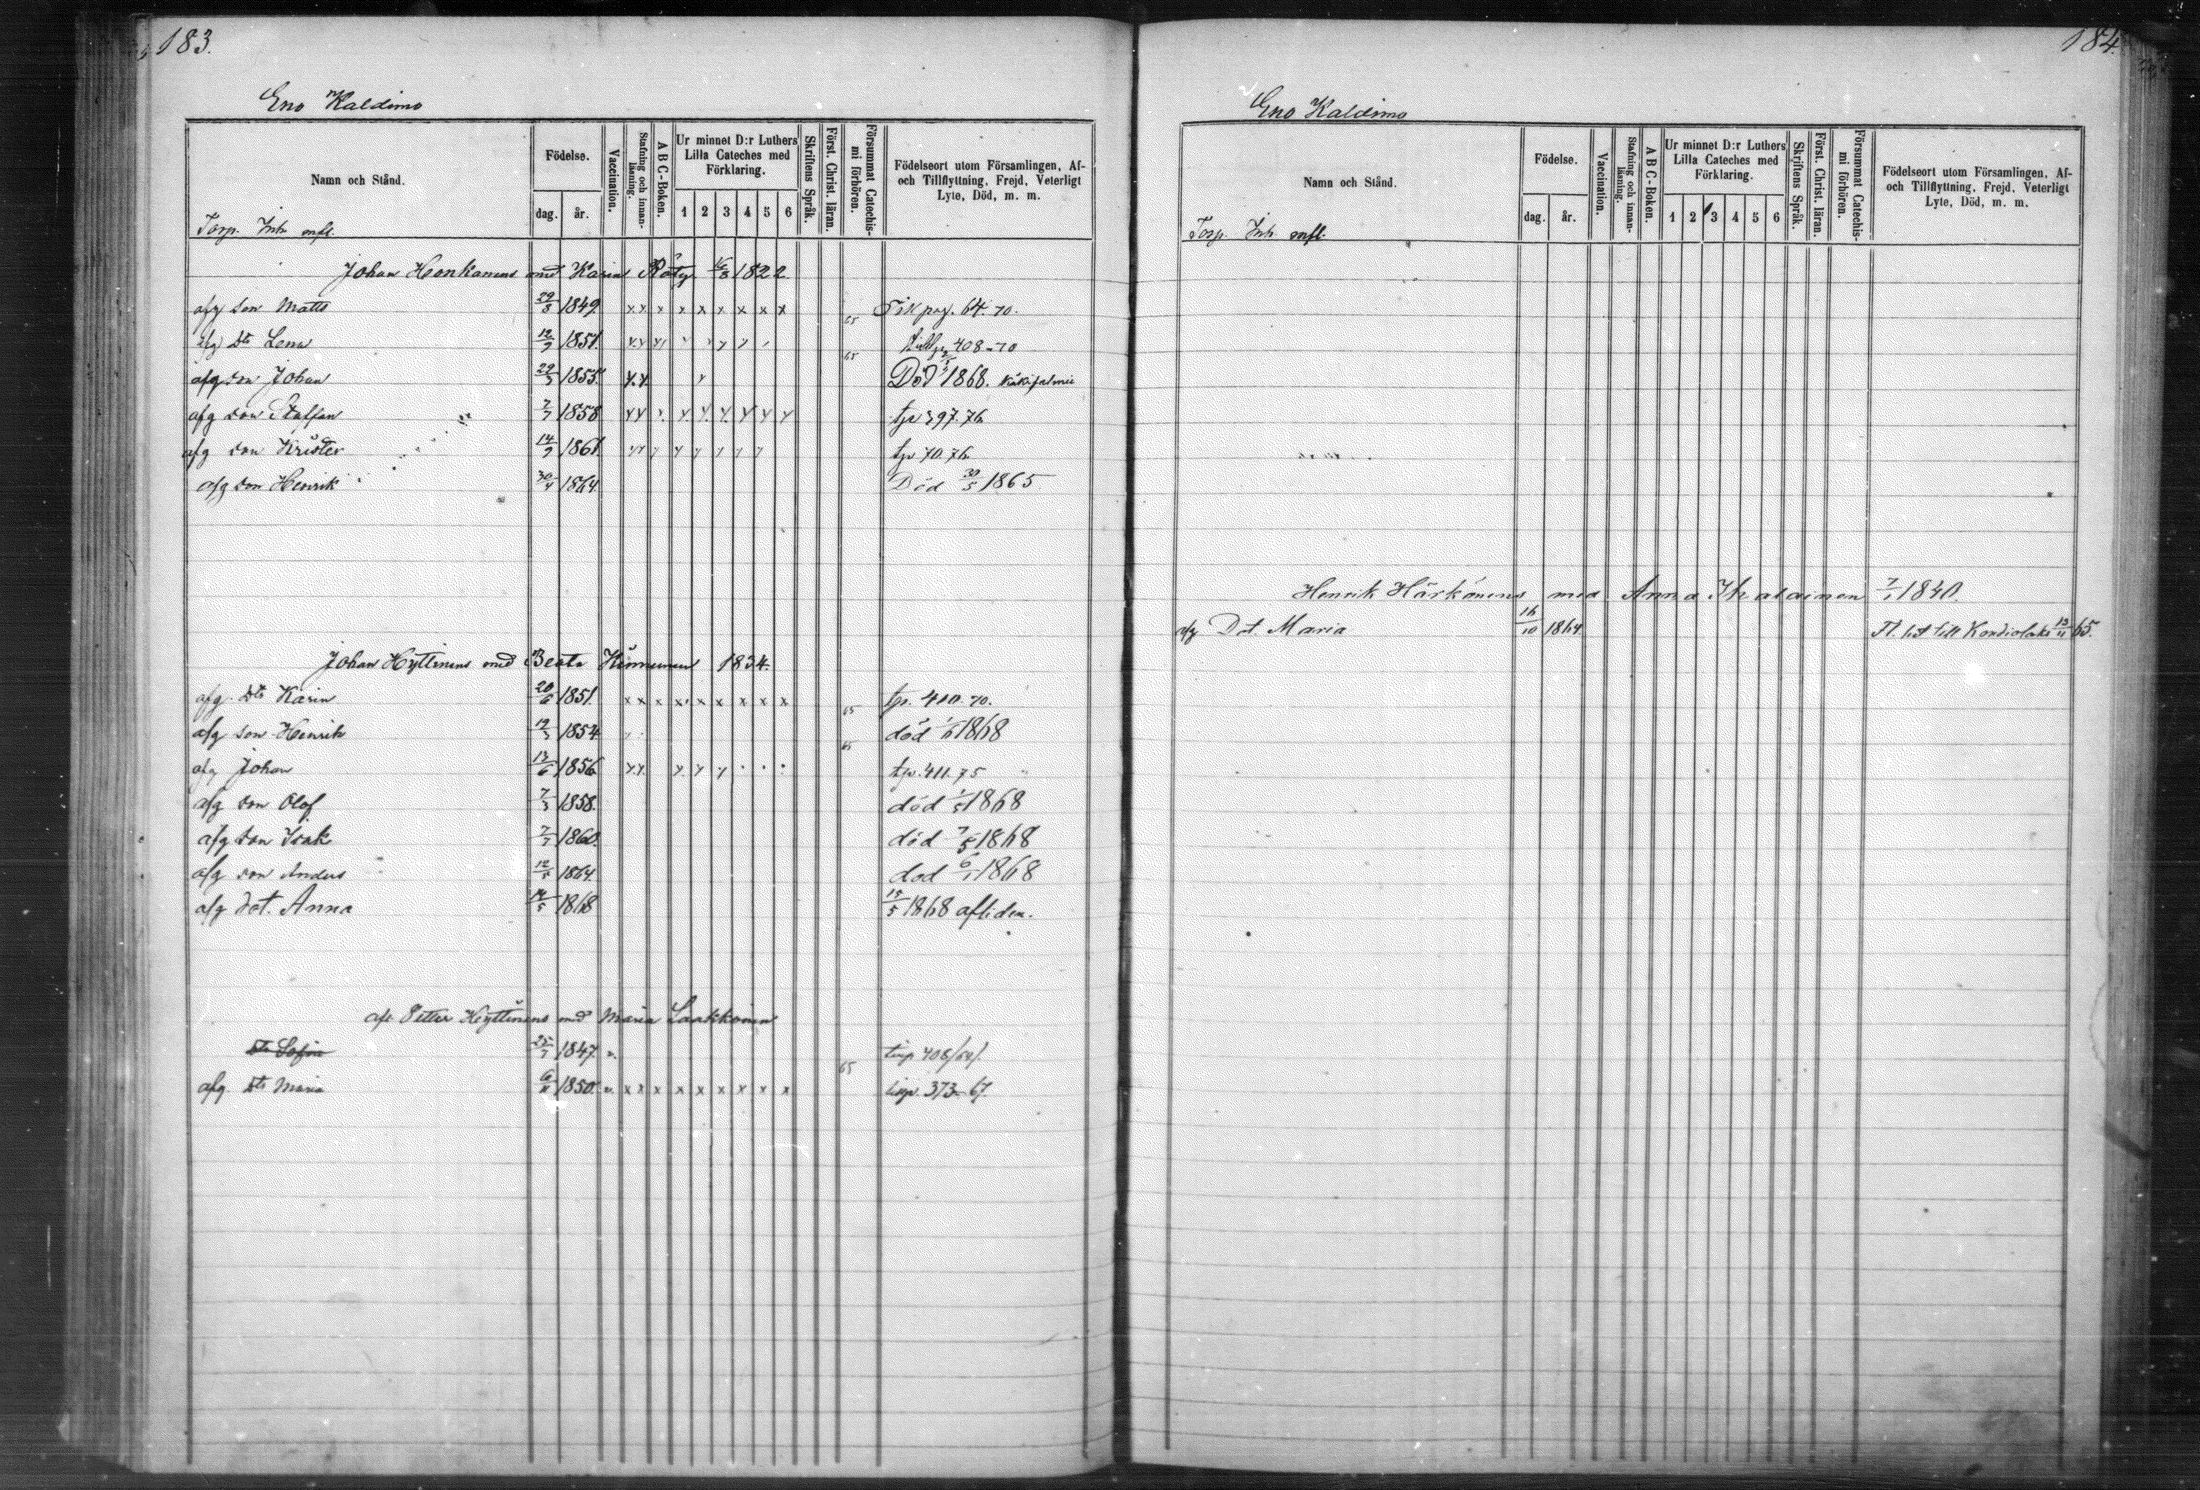 183.
Eno Kaldimo
Namn och Stånd.
Födelse.
dag. år.
Vaccination.
Stafning och innanläsning.
A B C-Boken.
Ur minnet D:r Luthers Lilla Cateches med Förklaring.
1 2 3 4 5 6
Skriftens Språk.
Först. Christ. läran.
Försummat Catechismi förhören.
Födelseort utom Församlingen, Af- och Tillflyttning, Frejd, Veterligt Lyte, Död, m. m.
Torp. Inh. mfl.
Johan Honkanens med Karin Räty 16/8 1822
afg son Matts 29/8 1849 x x x x x x x x x 65 pag. 64-70.
afg Dtr Lena 12/9 1851. 65 408-70
afg son Johan 29/3 1855. Död 1868.
afg son Staffan 7/7 1858 tp 397.76
afg son Krister 14/9 1861 tp 70.76
afg son Henrik 30/4 1864 Död 30/5 1865
Johan Hyttinens med Beata Kinnunen 1834.
afg. Dtr Karin 20/6 1851. x x x x x x x x x 65 tp. 400.70.
afg son Henrik 1854 65 död 1868
afg Johan 13/6 1856 tp. 411.75
afg son Olof 7/3 1858. död 1/5 1868
afg son Isak 7/7 1860. död 7/5 1868
afg son Anders 1864. död 6/1 1868
afg dot. Anna 14/5 1868 15/5 1868 afliden.
afl Petter Hyttinens med Maria Laakkonen
Dtr Sofia 25/7 1847 v.
afg. Dtr Maria 6/11 1850. v. x x x x x x x x x 65 373-67.
184.
Eno Kaldimo
Namn och Stånd.
Födelse.
dag. år.
Vaccination.
Stafning och innanläsning.
A B C-Boken.
Ur minnet D:r Luthers Lilla Cateches med Förklaring.
1 2 3 4 5 6
Skriftens Språk.
Först. Christ. läran.
Försummat Catechismi förhören.
Födelseort utom Församlingen, Af- och Tillflyttning, Frejd, Veterligt Lyte, Död, m. m.
Torp. Inh. mfl.
Henrik Härkönens med Anna Ihalainen 7/1 1840.
afg Dot. Maria 16/10 1864. Fl. bet till Kondiolaks 13/11 65.